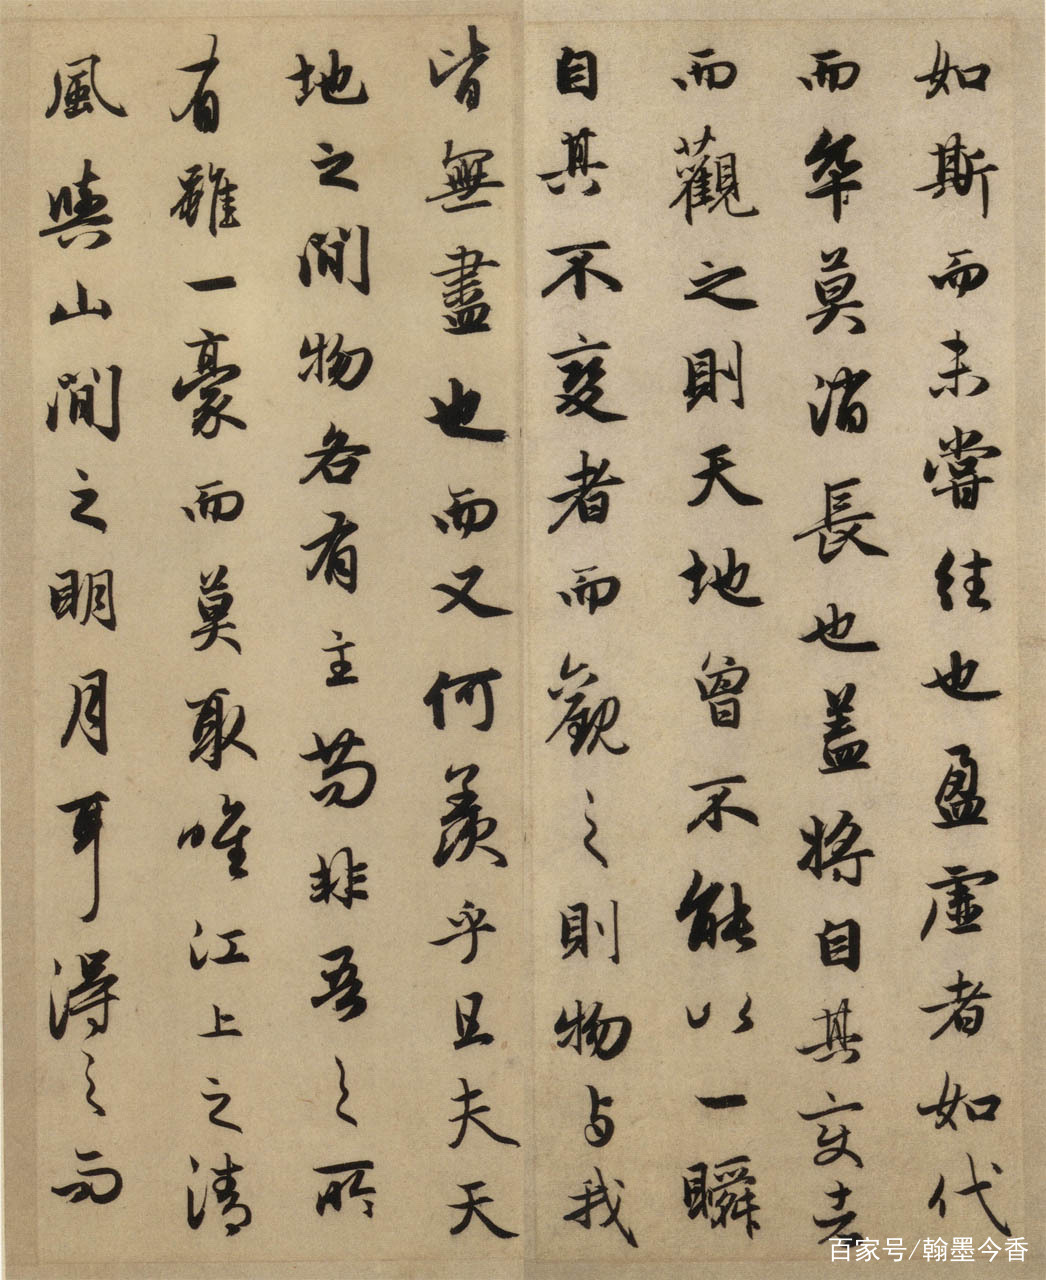 如斯而未嘗往也盈虛者如代
而卒莫消長也蓋將自其变者
而觀之則天地曾不能以一瞬
自其不變者而觀之則物与我
皆無盡也而又何羨乎且夫天
地之間物各有主苟非吾之所
有雖一豪而莫取唯江上之清
風與山間之明月耳得之而
百家号/翰墨今香